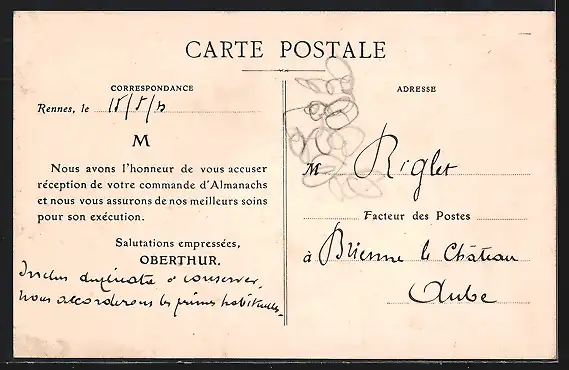 CARTE POSTALE
CORRESPONDANCE
Rennes, le 18/8/13
M
Nous avons l'honneur de vous accuser
réception de votre commande d'Almanachs
et nous vous assurons de nos meilleurs soins
pour son exécution.
Salutations empressées,
OBERTHUR.
Inclus duplicata à conserver.
Nous accorderons les primes habituelles.
ADRESSE
M Riglet
Facteur des Postes
à Brienne le Château
Aube